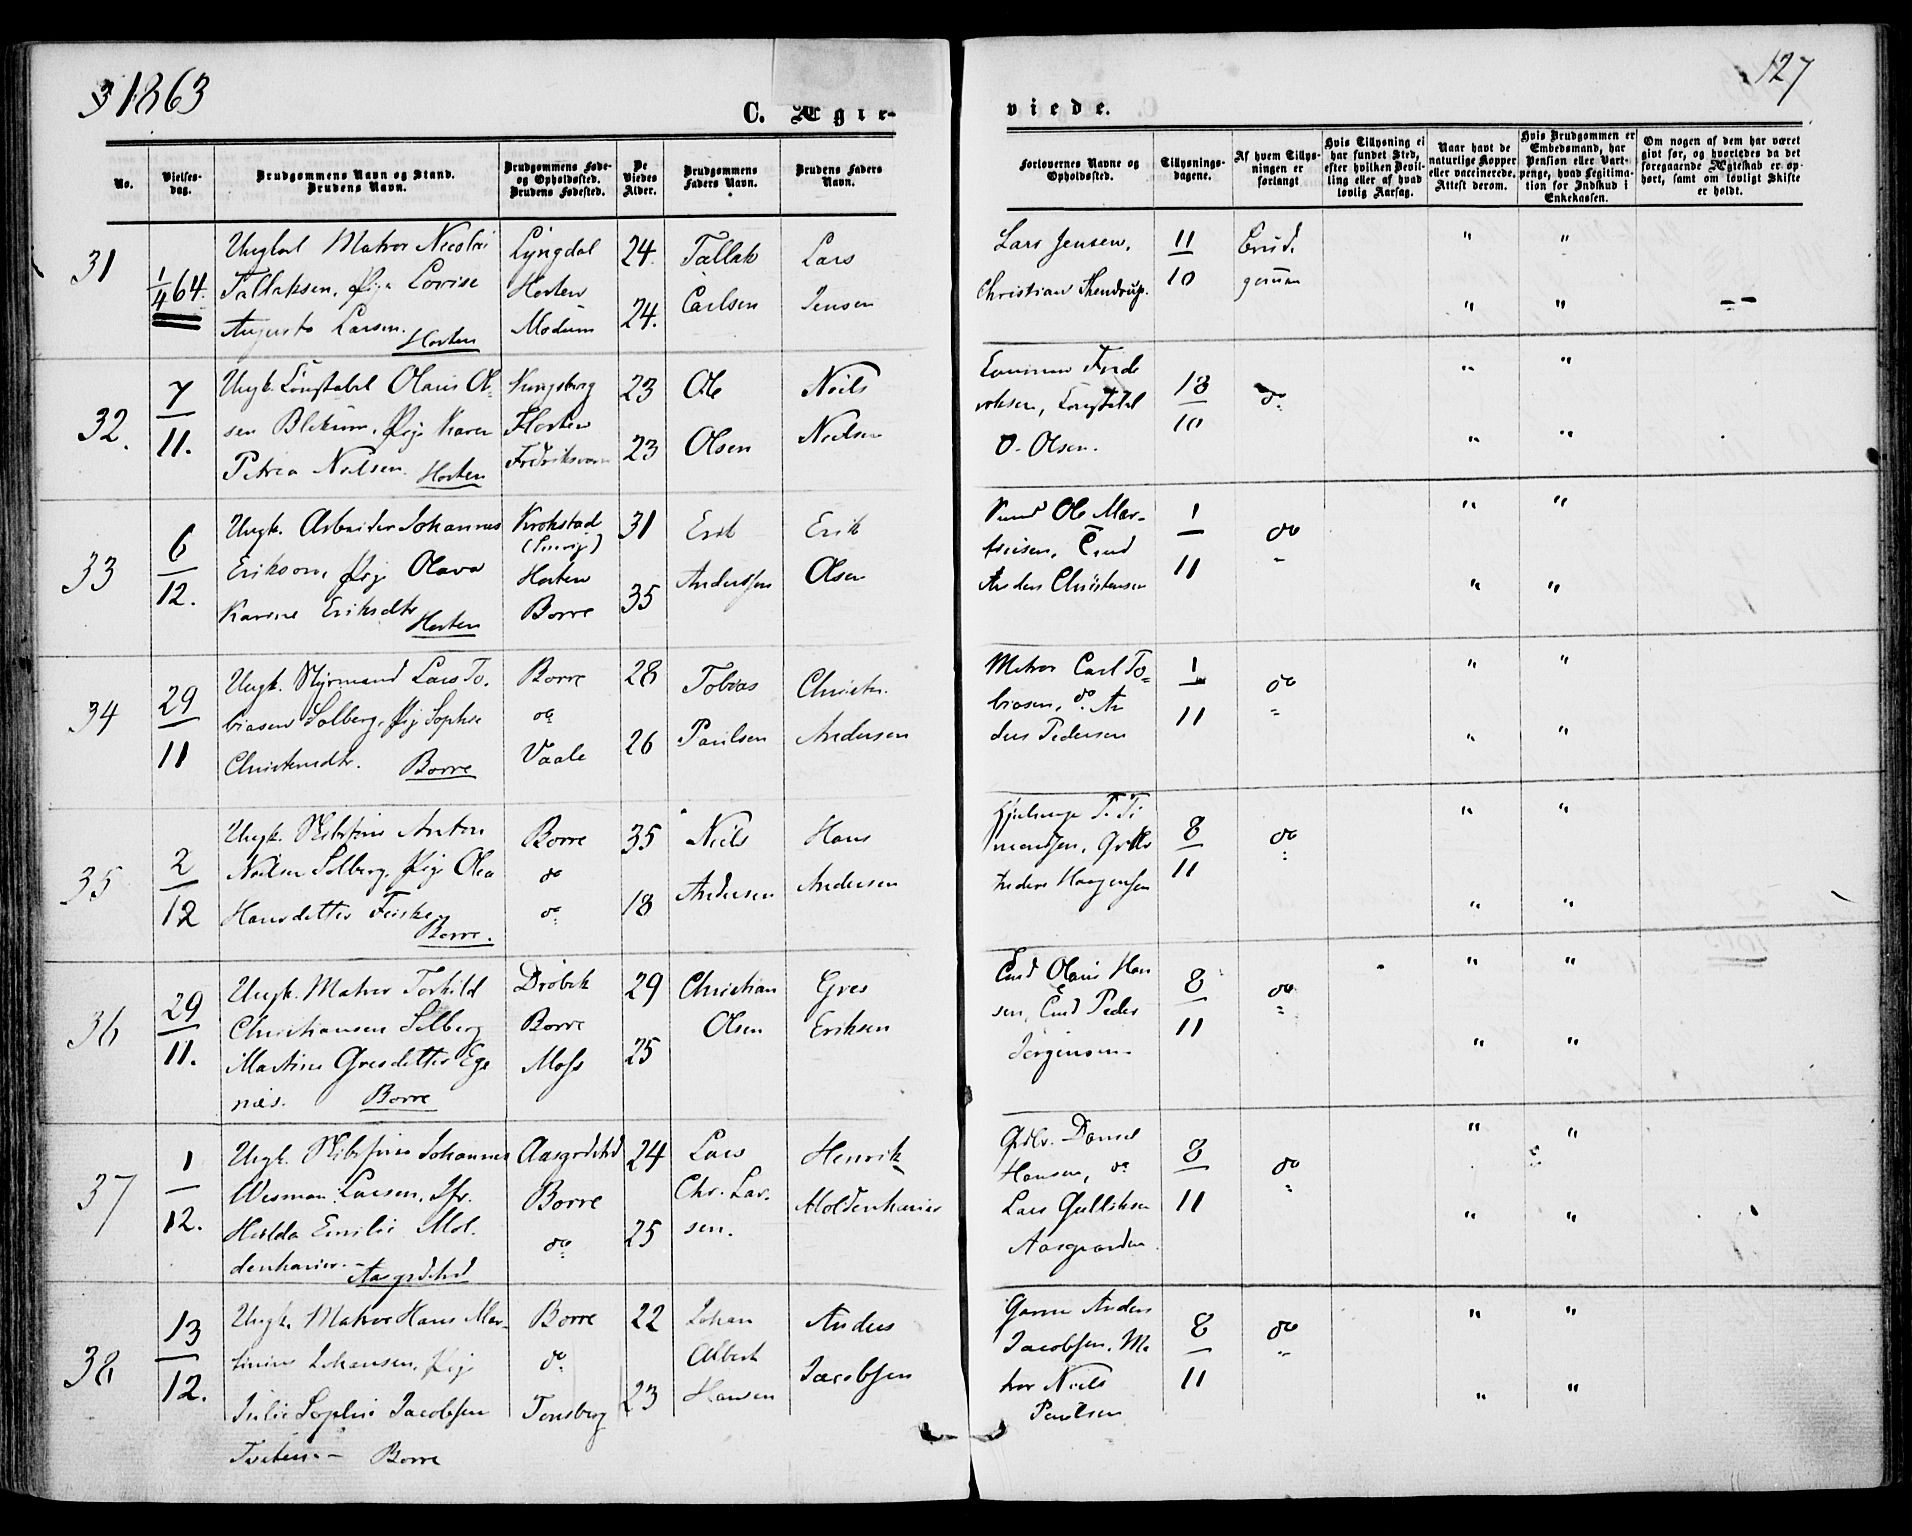 1863
127
C. Ægte-
viede.
No.
Vielses-
dag.
Brudgommens Navn og Stand.
Brudens Navn.
Brudgommens Føde-
og Opholdssted.
Brudens Fødested.
De
Viedes
Alder.
Brudgommens
Faders Navn.
Brudens Faders
Navn.
Forlovernes Navne og
Opholdssted.
Tillysnings-
dagene.
Af hvem Tillys-
ningen er
forlangt
Hvis Tillysning ei
har fundet Sted,
efter hvilken Bevil-
ling eller af hvad
lovlig Aarsag.
Naar havt de
naturlige Kopper
eller vaccinerede.
Attest derom.
Hvis Brudgommen er
Embedsmand, har
Pension eller Vart-
penge, hvad Legitima-
tion for Indskud i
Enkekassen.
Om nogen af dem har været
givt før, og hvorledes da det
foregaaende Ægteskab er op-
hørt, samt om lovligt Skifte
er holdt.
31
1/4 64.
Ungkarl Matros Nicolai
Tallaksen, Pige Lovise
Augusta Larsen.
Horten
Lyngdal
Horten
Modum
24.
24.
Tallak
Carlsen
Lars
Jensen
Lars Jensen,
Christian
11/10
Brud-
gommen
" "
" " --
32.
7/11.
Ungk. Constabel Olaus Ol-
sen Blekum, Pige Karen
Petrea Nielsen.
Horten
Kongsberg
Horten
Fredriksværn
23
23
Ole
Olsen
Niels
Nielsen
Fred-
riksen, Constabel
O. Olsen.
18/10
do
" "
" "
33
6/12.
Ungk. Arbeider Johannes
Erikson, Pige Olava
Karine Eriksdtr
Horten
Krokstad
Horten
Borre
31
35
Erik
Anderssen
Erik
Olsen
Ole Mar-
Anders Christensen
1/11
do
" "
" "
34
29/11
Ungk. Styrmand Lars To-
biasen Solberg, Pige Sophie
Christensdtr.
Borre
Borre
do
Vaale
28
26
Tobias
Paulsen
Christen
Andersen
Matros Carl To-
biasen, do An-
ders Pedersen
1/11
do
" "
" "
35
2/12
Ungk. Anton
Nielsen Solberg, Pige Olea
Hansdatter
Borre.
Borre
do
do
35
18
Niels
Andersen
Hans
Andersen
Anders Haagensen
8/11
do
" "
" "
36
29/11.
Ungk. Matros Torkild
Christiansen Solberg
Martine Gresdatter Ege-
næs.
Borre
Drøbak
Borre
Moss
29
25
Christian
Olsen
Gres
Eriksen
Olaus Han
sen, Peder
Jørgensen
8/11
do
" "
" "
37
1/12.
Ungk. Johannes
Wisman Larsen, Jfr.
Hulda Emilie Mol-
denhauer.
Aasgrdstrd
Aasgrdstrd
Borre
do
24
25
Lars
Chr. Lar-
sen.
Henrik
Moldenhauer
Grdbr. Daniel
Hansen, do
Lars Gulliksen
Aasgaarden
8/11
do
" "
" "
38
13/12.
Ungk. Matros Hans Mar-
tinius Johansen, Pige
Julie Sophie Jacobsen
Tveten. - Borre
Borre
do
Tønsberg
22
23
Johan
Albert
Hansen
Anders
Jacobsen
Anders
Jacobsen, Ma-
tros Niels
Paulsen
8/11
do
" "
" "